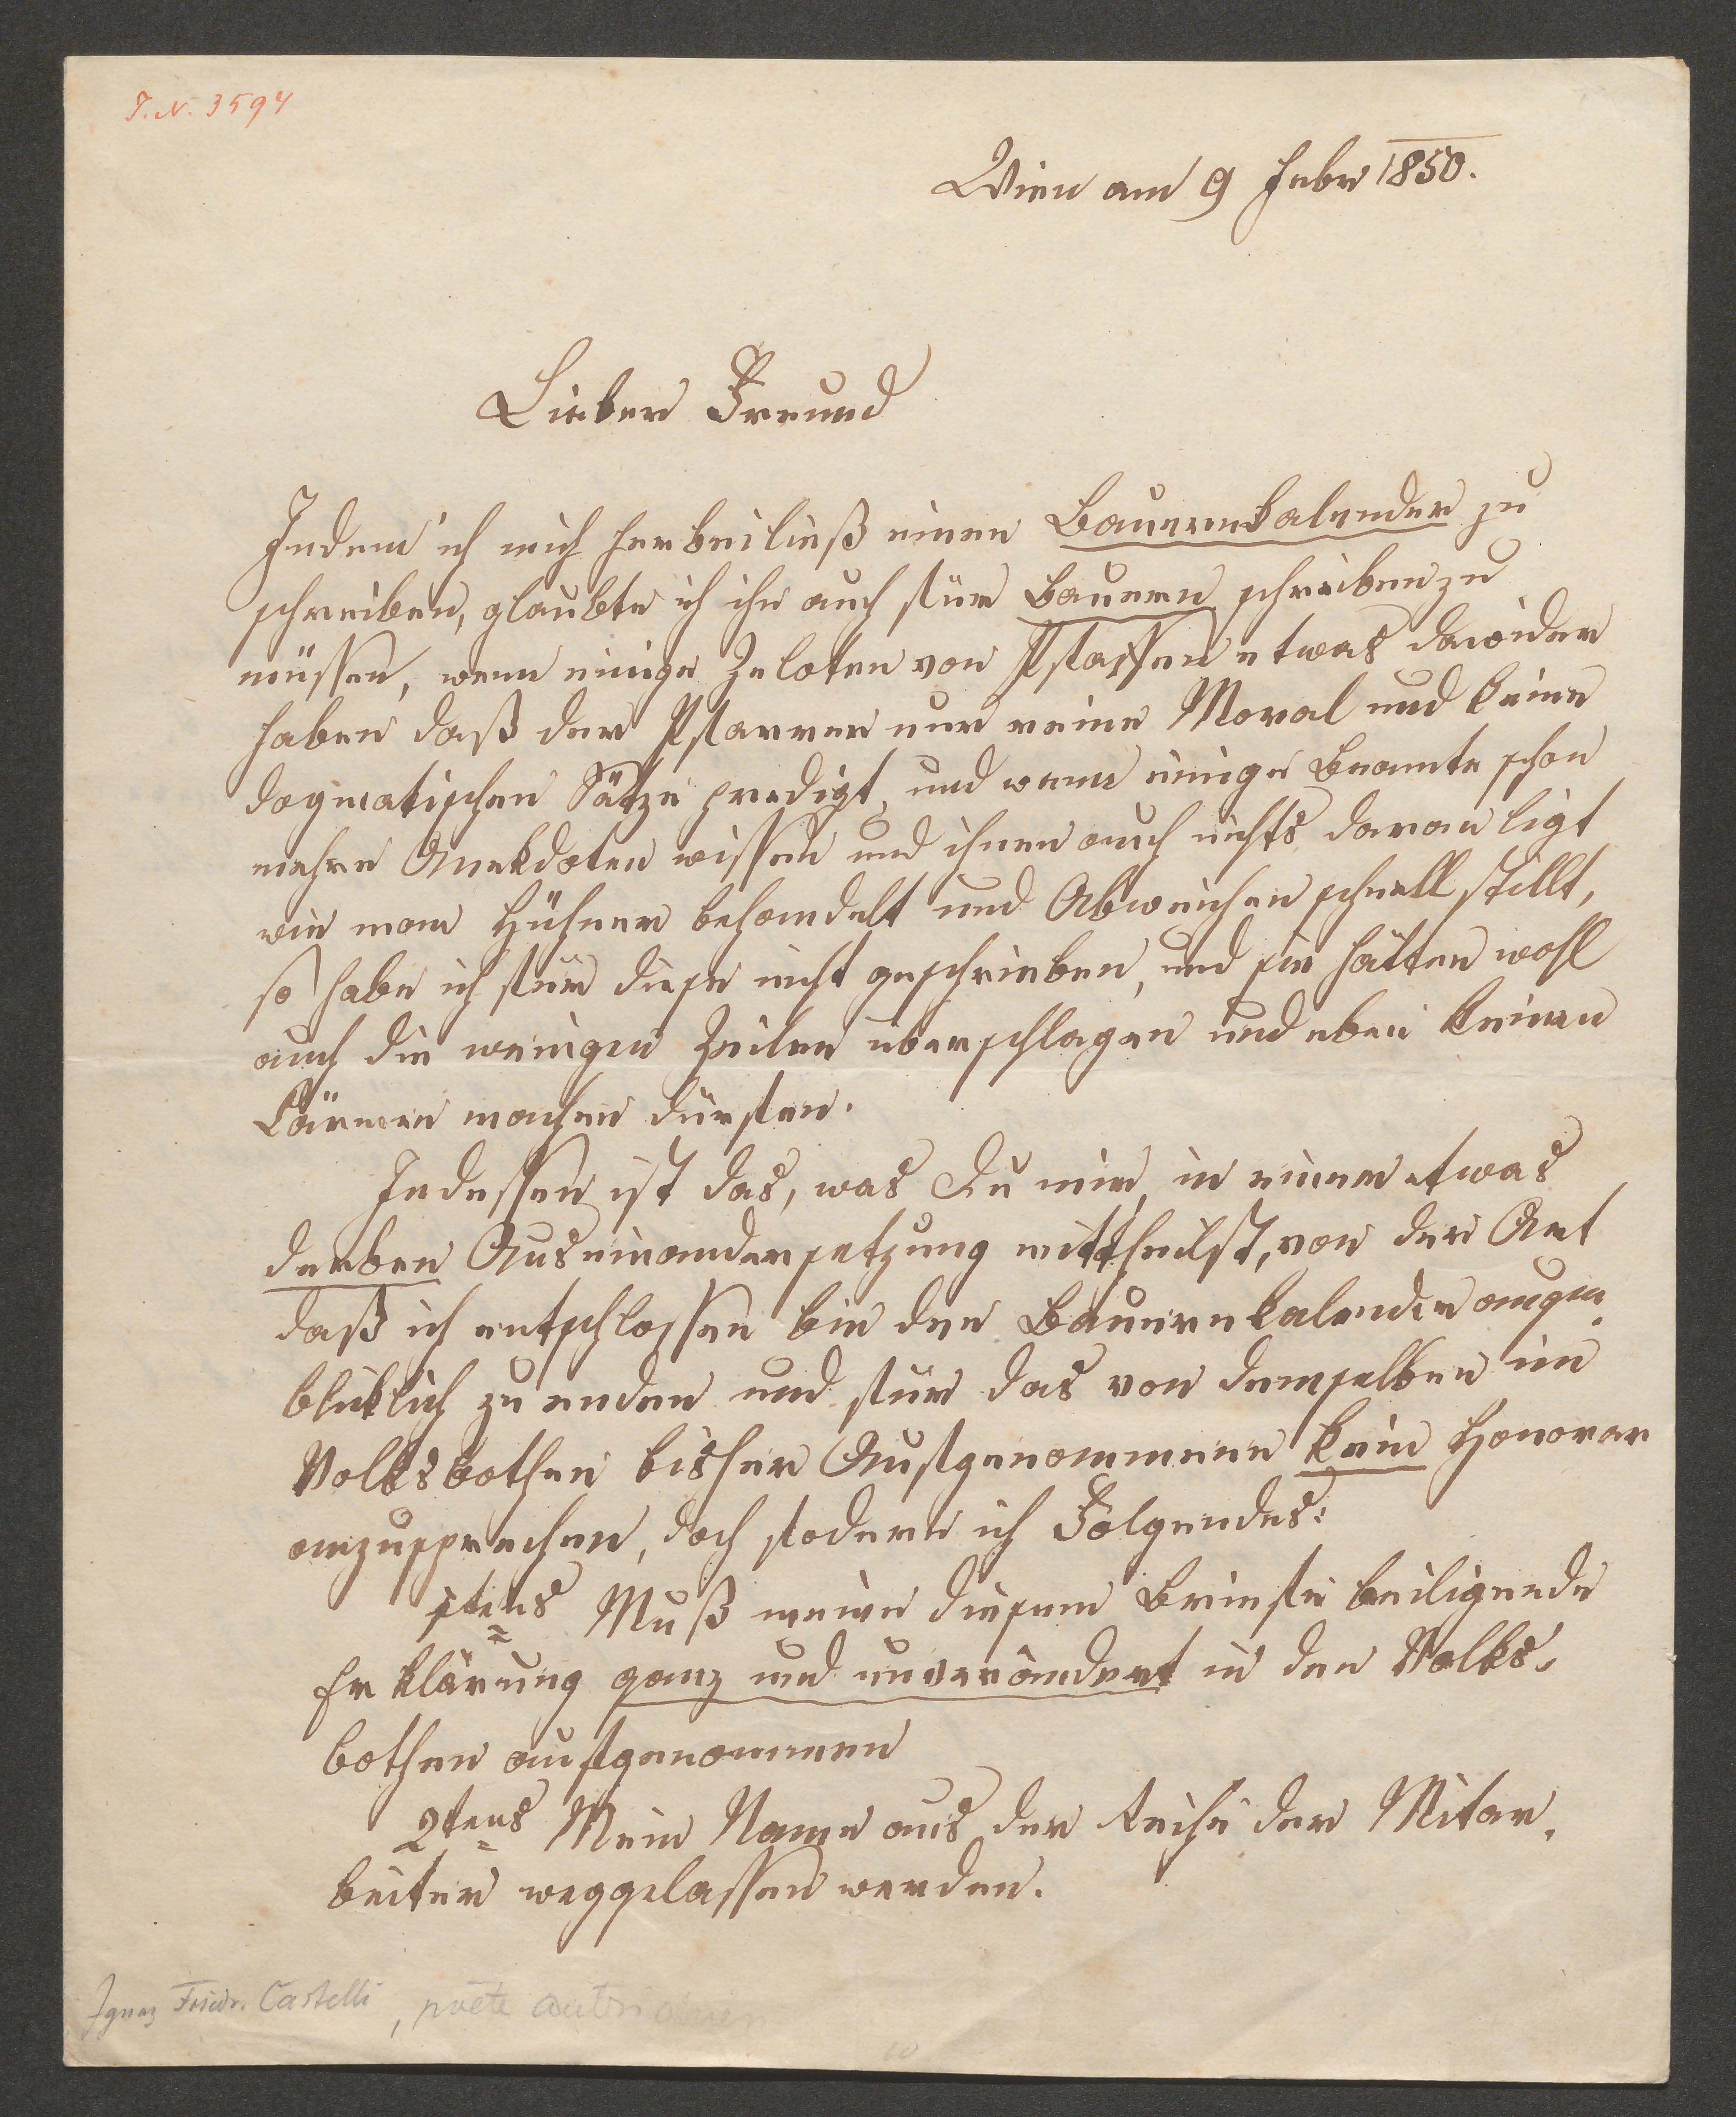 T.N. 3594
Wien am 9 Febr 1850.
Lieber Freund
Indem ich mich herbeiließ einen Bauernkalender zu
schreiben, glaubte ich ihn auch für Bauern schreiben zu
müssen, wenn einige Zeloten von Pfaffen etwas dawider
haben daß der Pfarrer nur reine Moral und keine
dogmatischen Sätze predigt, und wenn einige Beamte schon
mehre Anekdoten wissen und ihnen auch nichts daran ligt
wie man Hühner behandelt und Abweichen schnell stillt,
so habe ich für diese nicht geschrieben, und sie hätten wohl
auch die wenigen Zeilen überschlagen und eben keinen
Lärmen machen dürfen.
Indessen ist das, was Du mir, in einer etwas
derben Auseinandersetzung mittheilst, von der Art
daß ich entschlossen bin den Bauernkalender augen-
bliklich zu enden und für das von demselben im
Volksbothen bisher Aufgenommene kein Honorar
anzusprechen, doch fodere ich Folgendes:
1tens Muß meine diesem Briefe beiligende
Erklärung ganz und unverändert in den Volks-
bothen aufgenommen
2tens Mein Name aus der Reihe der Mitar-
beiter weggelassen werden.
Ignaz Friedr. Castelli, poëte autrichien